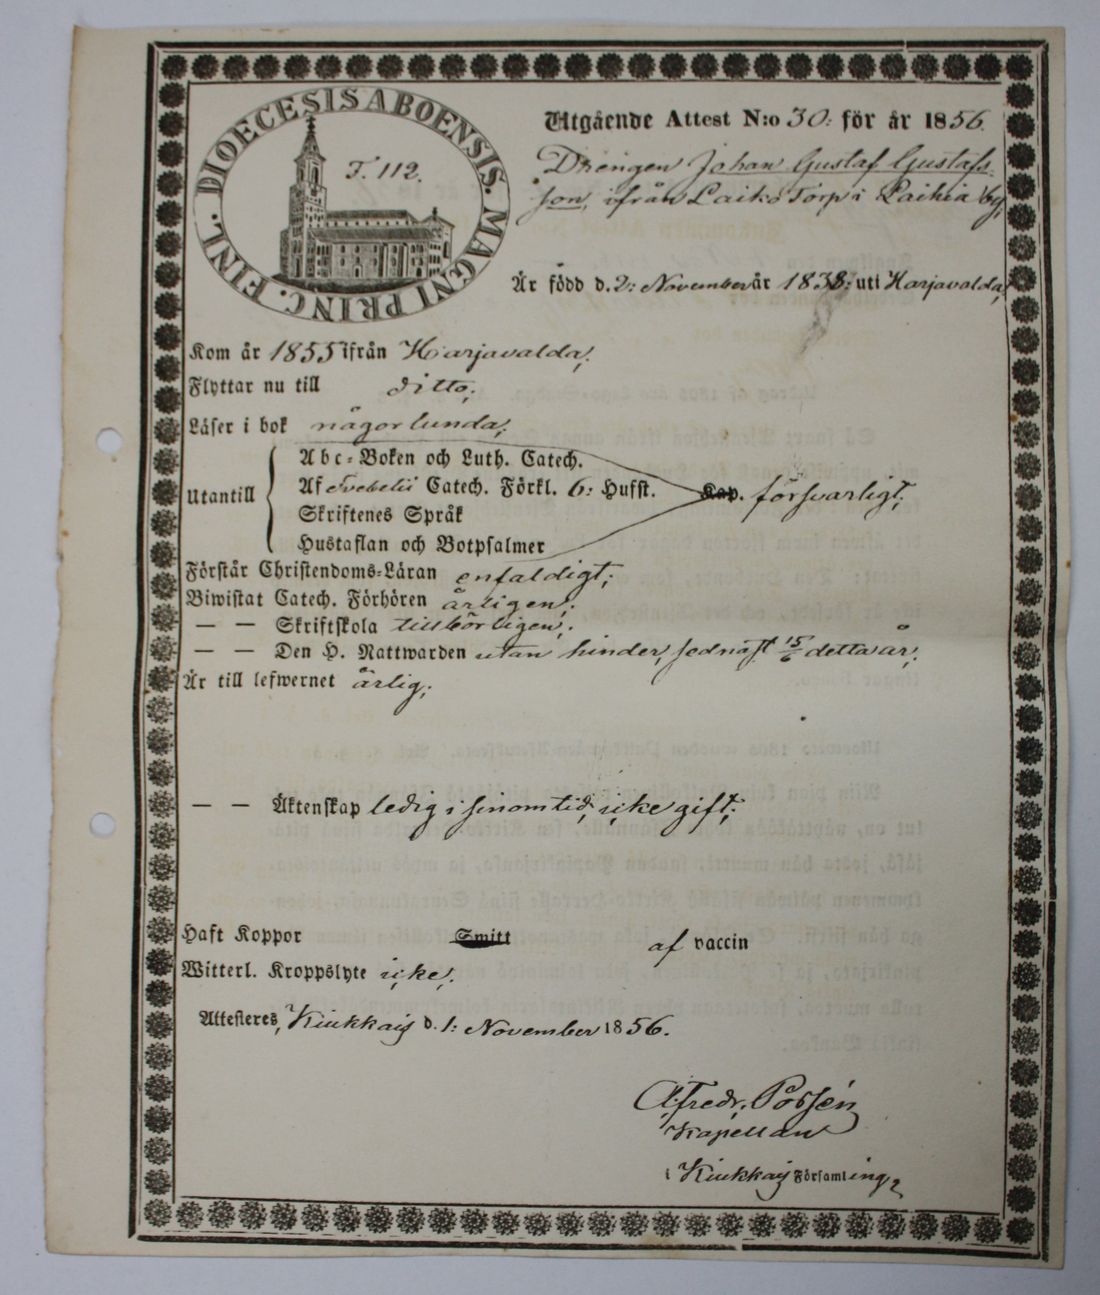 DIOECESIS ABOENSIS. MAGNI PRINC. FINL.
F. 112.
Utgående Attest N:o 30: för år 1856.
Drengen Johan Gustaf Gustafs-
son, ifrån Laiko Torp i Paikia by,
Är född d. 2: November år 1838: uti Harjavalda,
Kom år 1855 ifrån Harjavalda,
Flyttar nu till ditto,
Läser i bok någorlunda,
Utantill
Abc-Boken och Luth. Catech.
Af Svebelii Catech. Förkl. 6: Hufst.
Kap. försvarligt,
Skriftenes Språk
Hustaflan och Botpsalmer
Förstår Christendoms-Läran enfaldigt,
Biwistat Catech. Förhören årligen,
— — Skriftskola tillbörligen,
— — Den H. Nattwarden utan hinder, sednast 15/6 detta år,
Är till lefwernet ärlig,
— — Äktenskap ledig i sinom tid, icke gift,
Haft Koppor Smitt af vaccin
Witterl. Kroppslyte icke,
Attesteres, Kiukkais d. 1: November 1856.
Alfredr. Porsén
Kapellan
i Kiukkais Församling